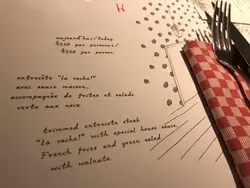 aujourd'hui/today
$250 par personne/
$250 per person
entrecôte "la vache!"
avec sauce maison,
accompagnée de frites et salade
verte aux noix.
trimmed entrecote steak
"la vache!" with special house sauce,
French fries and green salad
with walnuts.